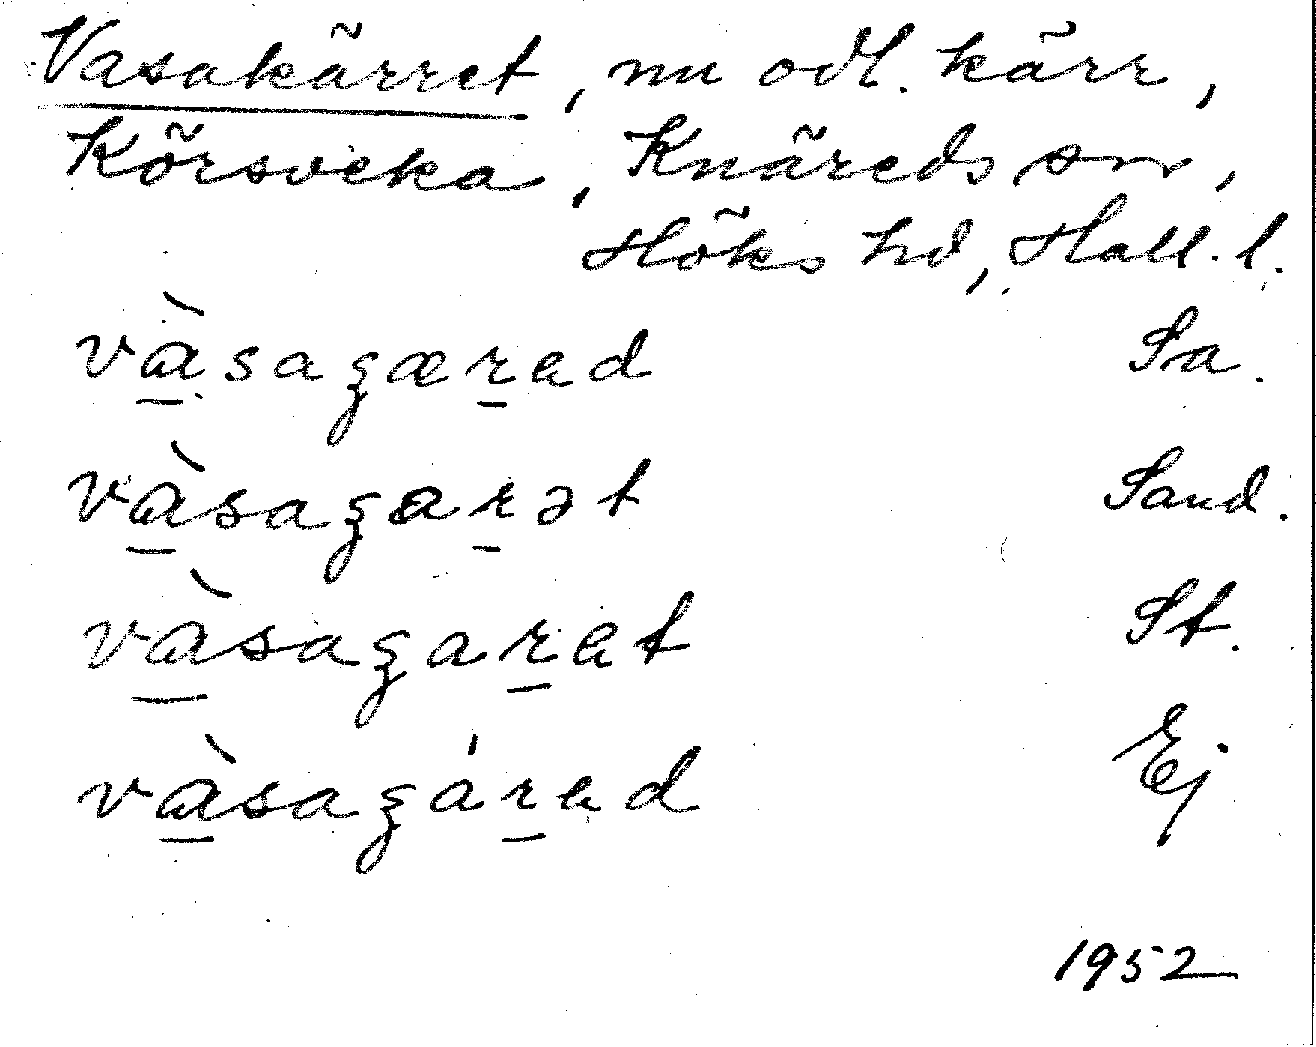 Vasakärret, nu odl. kärr,
Körsveka, Knäreds sn,
Höks hd, Hall. l.
vàsagæred Sa.
vàsagarət Sand.
vàsagaret St.
vàsagáred Ej
1952